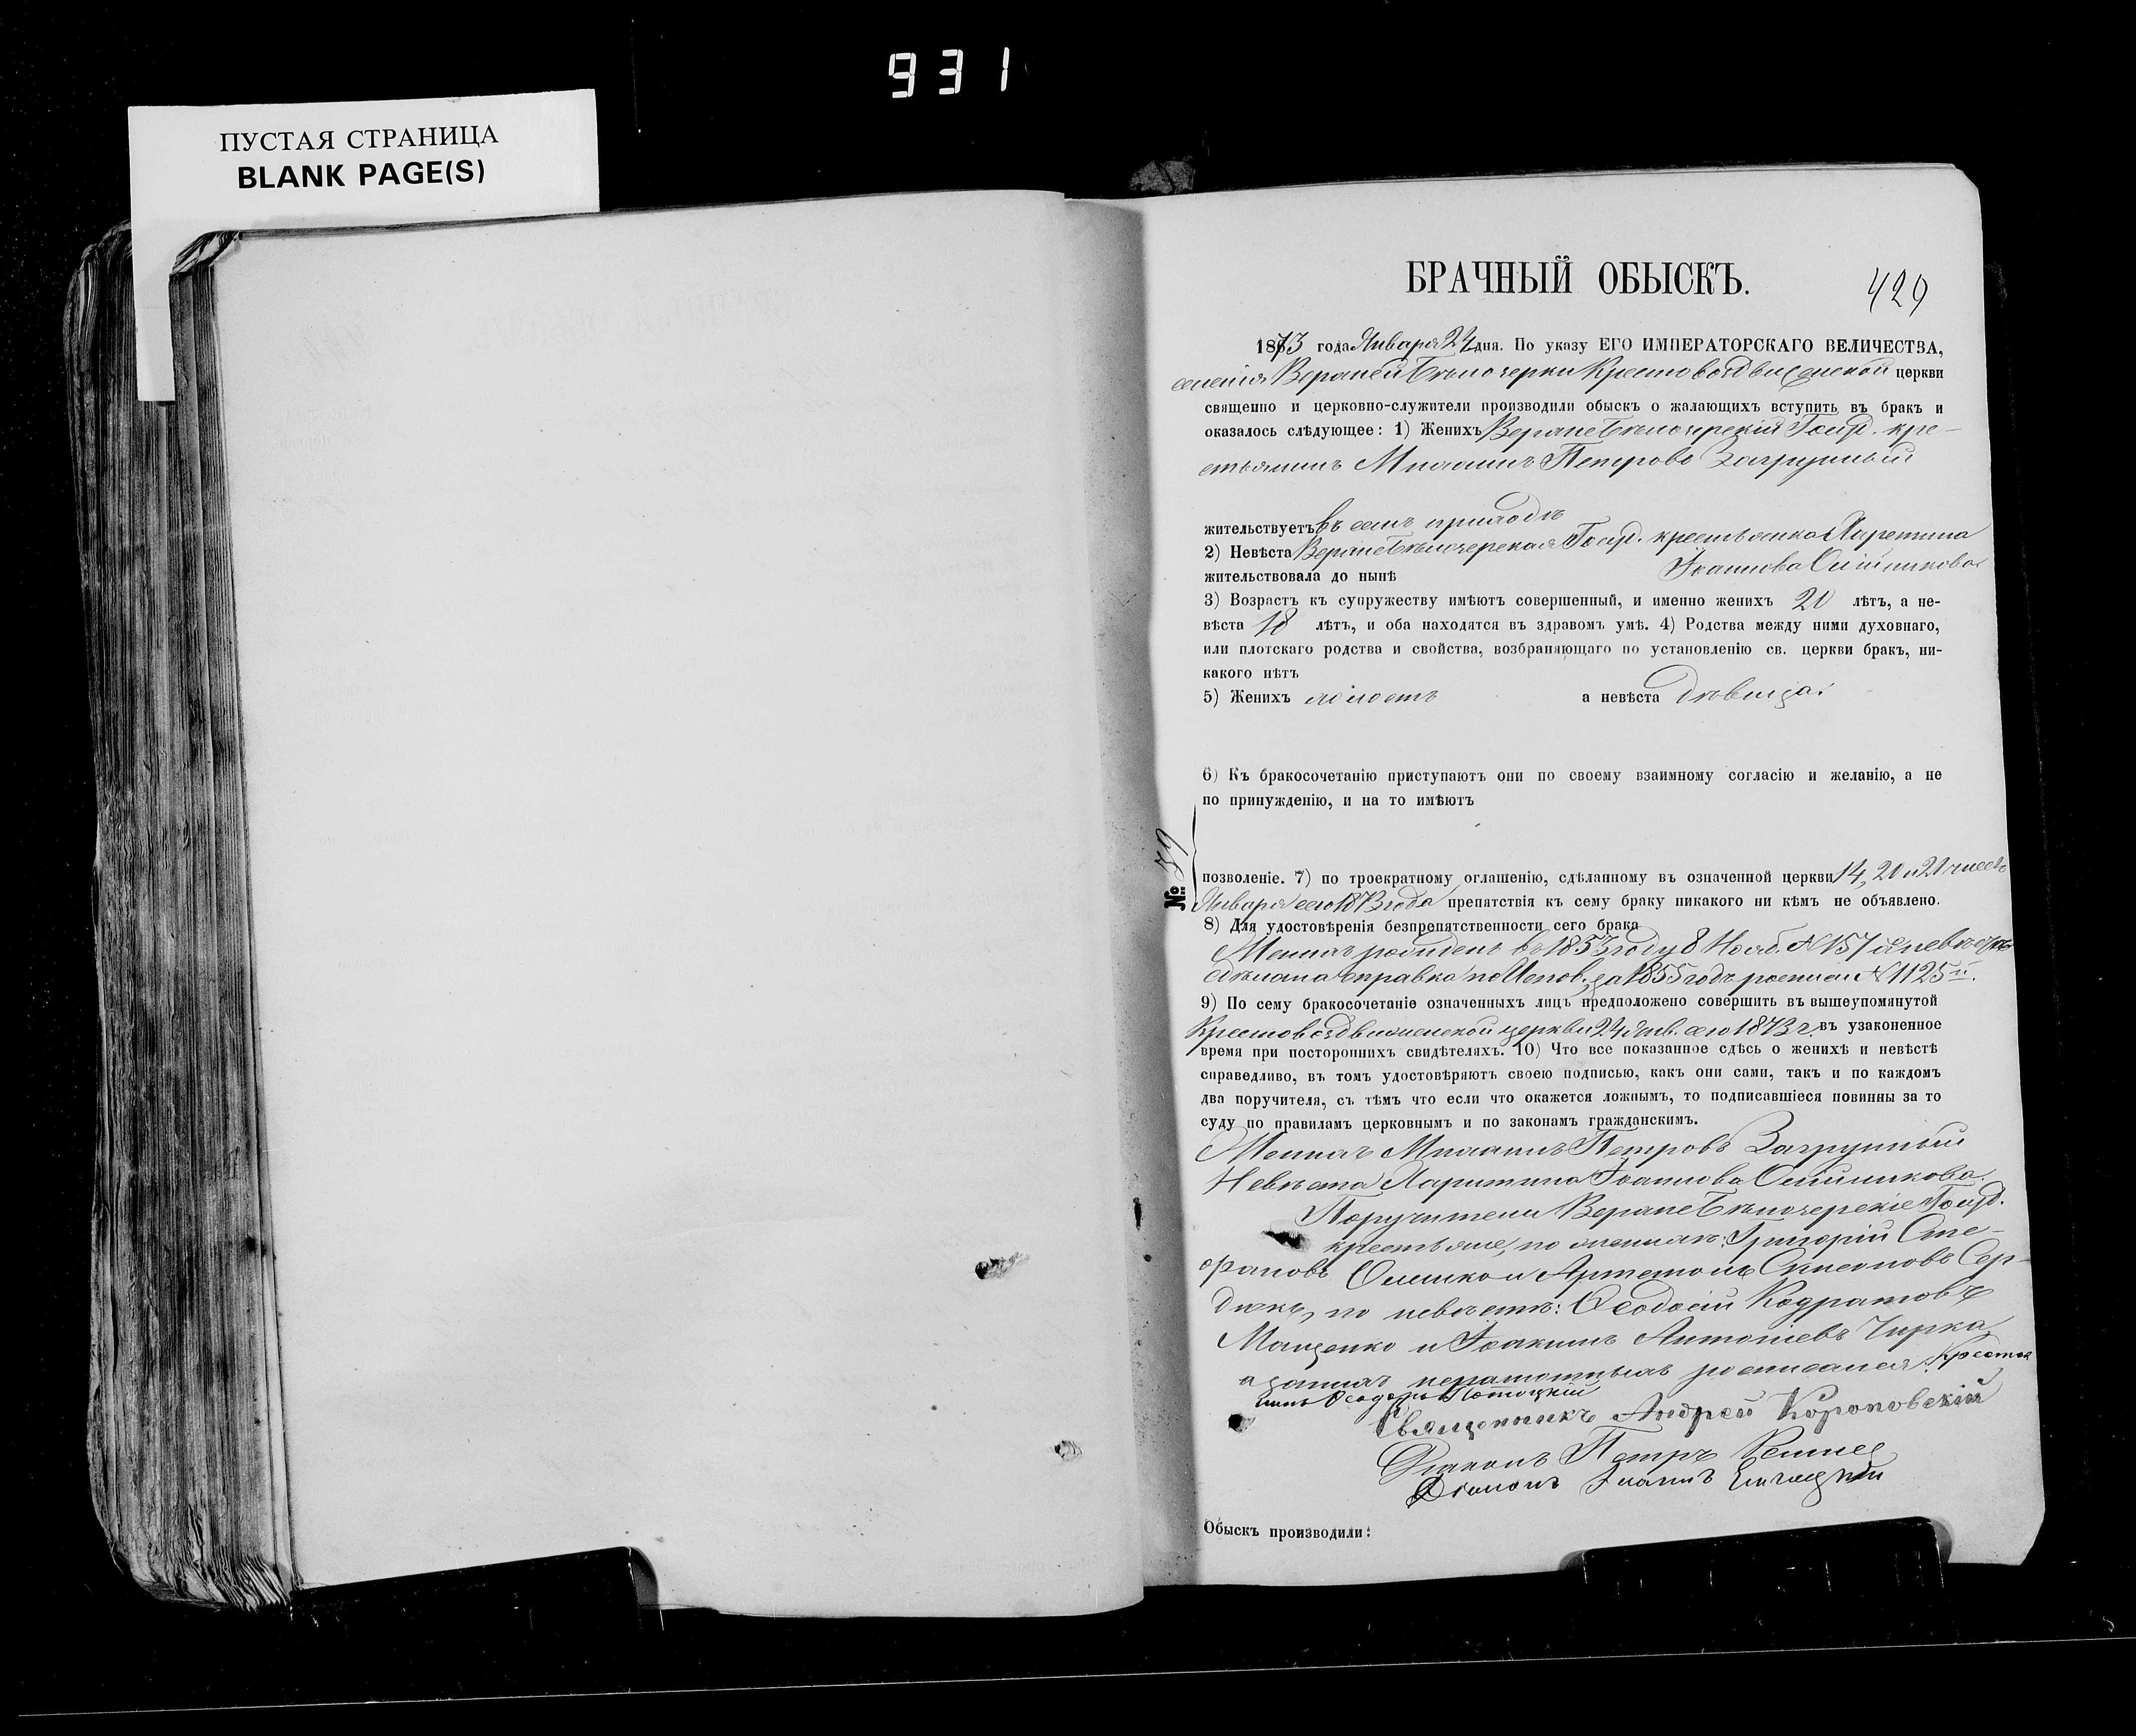 931
ПУСТАЯ СТРАНИЦА
BLANK PAGE(S)
БРАЧНЫЙ ОБЫСКЪ.
429
1873 года Января 24 дня. По указу ЕГО ИМПЕРАТОРСКАГО ВЕЛИЧЕСТВА,
селенія Верхней Крестовоздвиженской церкви
священно и церковно-служители производили обыскъ о жалающихъ вступить въ бракъ и
оказалось слѣдующее: 1) Женихъ Госуд. кре-
стьянинъ Михаилъ Петровъ Загрушный
жительствуетъ въ семъ приходѣ
2) Невѣста Госуд. крестьянка Харитина
Іоаннова Олійникова
жительствовала до нынѣ
3) Возрастъ къ супружеству имѣютъ совершенный, и именно женихъ 20 лѣтъ, а не-
вѣста 18 лѣтъ, и оба находятся въ здравомъ умѣ. 4) Родства между ними духовнаго,
или плотскаго родства и свойства, возбраняющаго по установленію св. церкви бракъ, ни-
какого нѣтъ
5) Женихъ холостъ а невѣста дѣвица.
6) Къ бракосочетанію приступаютъ они по своему взаимному согласію и желанію, а не
по принужденію, и на то имѣютъ
№
позволеніе. 7) по троекратному оглашенію, сдѣланному въ означенной церкви 14, 20 и 21 чиселъ
Января сего 1873 года препятствія къ сему браку никакого ни кѣмъ не объявлено.
8) Для удостовѣренія безпрепятственности сего брака
Женихъ рожденъ въ 1853 году 8 Нояб. № 157 а невѣстѣ
сдѣлана справка по Испов. за 1855 годъ росписи № 1125
9) По сему бракосочетаніе означенныхъ лицъ предположено совершить въ вышеупомянутой
Крестовоздвиженской церкви 24 Янв. сего 1873 г. въ узаконенное
время при постороннихъ свидѣтеляхъ. 10) Что все показанное сдѣсь о женихѣ и невѣстѣ
справедливо, въ томъ удостовѣряютъ своею подписью, какъ они сами, такъ и по каждомъ
два поручителя, съ тѣмъ что если что окажется ложнымъ, то подписавшіеся повинны за то
суду по правиламъ церковнымъ и по законамъ гражданскимъ.
Женихъ Михаилъ Петровъ Загрушный
Невѣста Харитина Іоаннова Олійникова.
Поручители Госуд.
крестьяне, по женихѣ: Григорій Сте-
фановъ и Артемонъ Симеоновъ Сер-
дюкъ, по невѣстѣ: Ѳеодосій Кодратовъ
Маценко и Іоакимъ Антоніевъ Чирка,
а за нихъ неграмотныхъ росписался Крестья
нинъ Ѳеодоръ
Священникъ Андрей Короповскій
Діаконъ Петръ
Діаконъ Іоаннъ
Обыскъ производили: